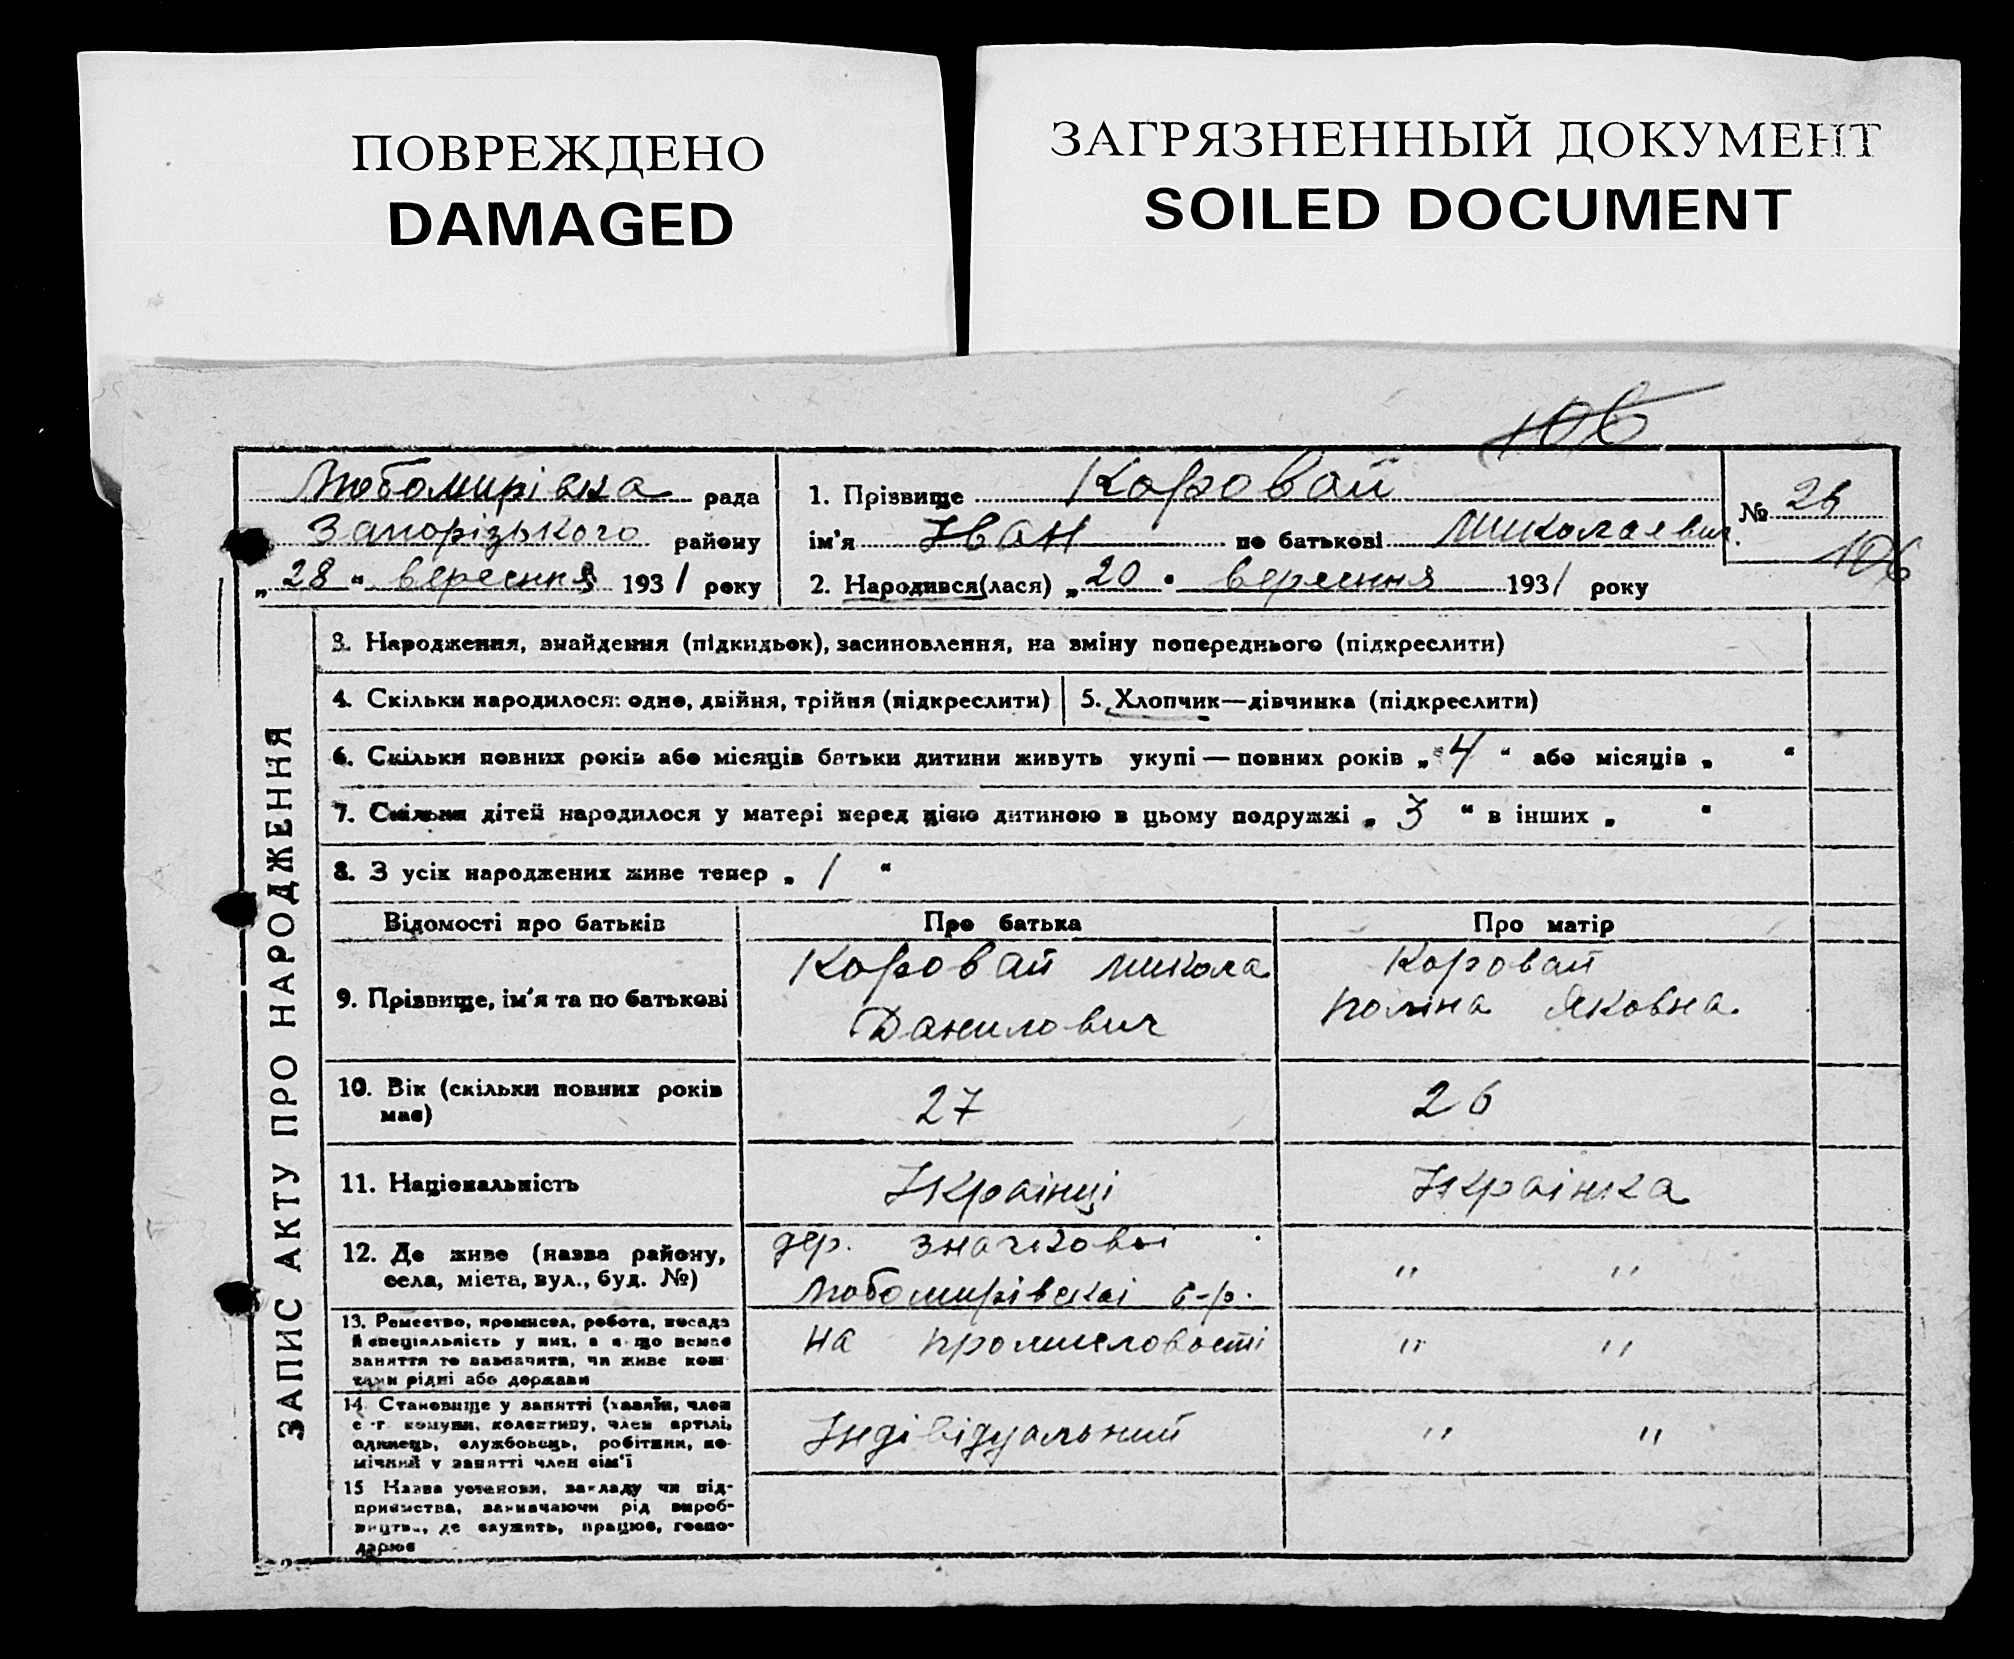 ПОВРЕЖДЕНО
DAMAGED
ЗАГРЯЗНЕННЫЙ ДОКУМЕНТ
SOILED DOCUMENT
106
Любомирівка рада
Запорізького району
„28“ вересня 1931 року
1. Прізвище Коровай
ім'я Іван по батькові Миколаевич.
№ 26
106
2. Народився(лася) „20“ вересня 1931 року
ЗАПИС АКТУ ПРО НАРОДЖЕННЯ
3. Народження, знайдення (підкидьок), засиновлення, на зміну попереднього (підкреслити)
4. Скільки народилося: одно, двійня, трійня (підкреслити)
5. Хлопчик—дівчинка (підкреслити)
6. Скільки повних років або місяців батьки дитини живуть укупі — повних років „4“ або місяців „ “
7. Скільки дітей народилося у матері перед цією дитиною в цьому подружжі „3“ в інших „ “
8. З усіх народжених живе тепер „1“
Відомості про батьків Про батька Про матір
9. Прізвище, ім'я та по батькові
Коровай Микола
Данилович
Коровай
Поліна Яковна.
10. Вік (скільки повних років
має)
27 26
11. Національність Українці Українка
12. Де живе (назва району,
села, міста, вул., буд. №)
дер. Значкові
Любомирівскаі с-р.
" "
13. Ремество, промисел, робота, посада
й спеціяльність у них, а якщо немає
заняття то зазначити, чи живе кош-
тами рідні або держави
на промисловості
" "
14. Становище у занятті (хазяїн, член
с.-г. комуни, колективу, член артілі,
одинець, службовець, робітник, по-
мічний у занятті член сім'ї
Індівідуальний
" "
15 Назва установи, закладу чи під-
приємства, зазначаючи рід вироб-
ництва, де служить, працює, госпо-
дарює